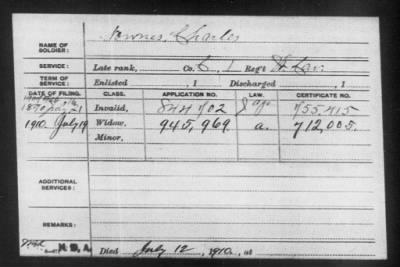 NAME OF SOLDIER: Townes, Charles
SERVICE: Late rank, Co. C, 1 Reg't H. Cav.
TERM OF SERVICE: Enlisted , 1 Discharged , 1
DATE OF FILING. CLASS. APPLICATION NO. LAW. CERTIFICATE NO.
Invalid, 844702 755.415
1910. July 19 Widow, 945,969. a. 712,005.
Minor,
ADDITIONAL SERVICES:
REMARKS:
Died July 12, 1910, at